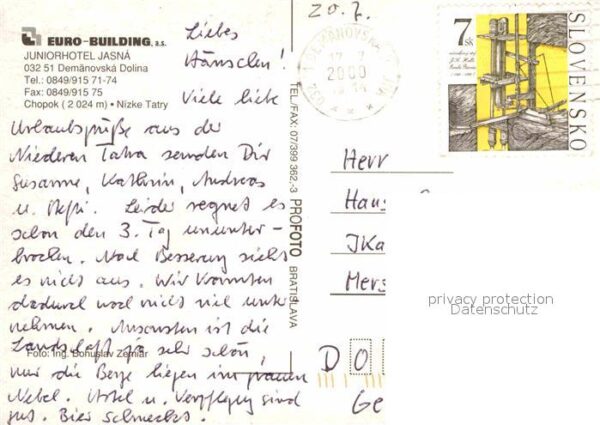 20.7.
EURO-BUILDING, a.s.
JUNIORHOTEL JASNÁ
032 51 Demänovská Dolina
Tel.: 0849/915 71-74
Fax: 0849/915 75
Chopok ( 2 024 m) • Nízke Tatry
Liebes
Hänschen!
Viele liebe
Urlaubsgrüße aus der
Niederen Tatra senden Dir
Susanne, Kathrin, Andreas
u. Leider regnet es
schon den 3. Tag ununter-
brochen. Nach Besserung sieht
es nicht aus. Wir konnten
dadurch noch nicht viel unter
nehmen. Ansonsten ist die
Landschaft ja sehr schön,
nur die Berge liegen im grauen
Nebel. Hotel u. Verpflegung sind
gut. Bier schmeckt.
Foto: Ing. Bohuslav Zemiar
TEL./FAX: 07/399 362,-3 PROFOTO BRATISLAVA
DEMÄNOVSKÁ
17.7.
2000
7 sk
SLOVENSKO
Herr
Hans
JKa
Mers
D O
Ge
privacy protection
Datenschutz